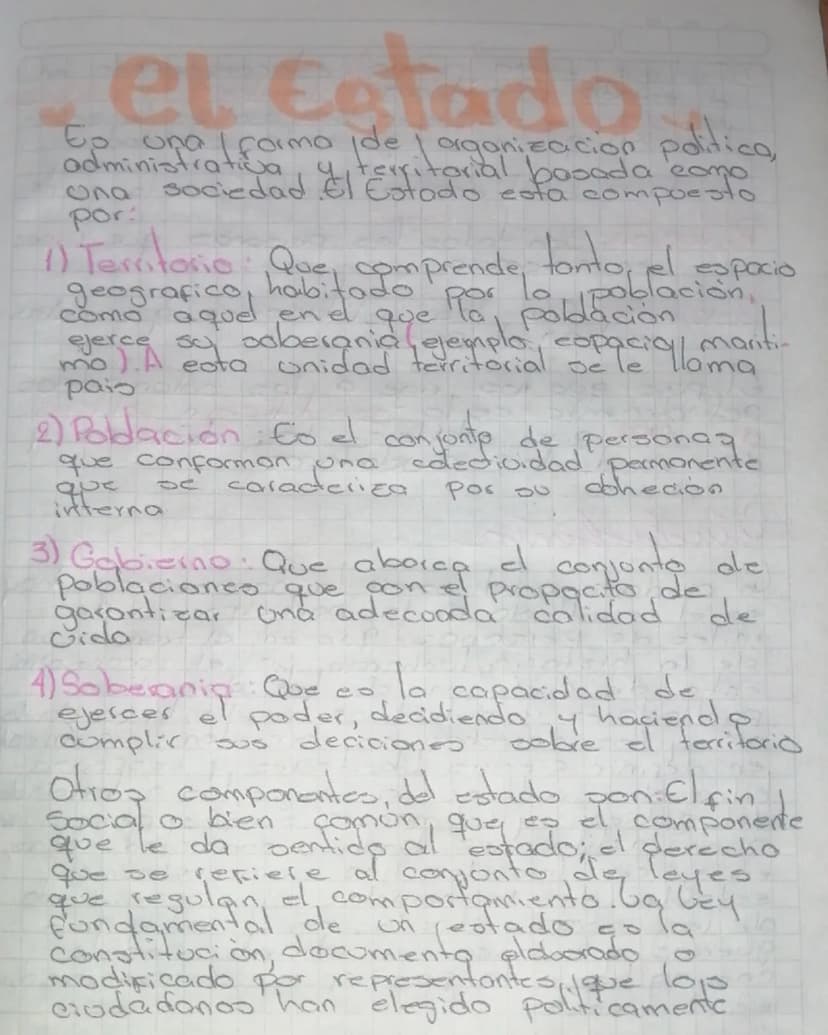 el Estado
Es una forma de organizacion politica,
administrativa y territorial basada como
una sociedad. El Estado esta compuesto
por:
1) Territorio: Que comprende tanto el espacio
geografico habitado por la población,
como aquel en el que la población
ejerce su soberania (ejemplo, espacial maríti-
mo). A esta unidad territorial se le llama
pais
2) Población: Es el conjunto de personas
que conforman una colectividad permanente
que se caracteriza por su cohecion
interna
3) Gobierno: Que abarca el conjunto de
poblaciones que con el propocito de
garantizar una adecuada calidad de
vida
4) Soberania: Que es la capacidad de
ejercer el poder, decidiendo y haciendo
cumplir sus deciciones sobre el territorio
Otros componentes, del estado son: El fin
social o bien común, que es el componente
que le da sentido al estado; el derecho
que se refiere al conjunto de leyes
que regulan el comportamiento. La Ley
fundamental de un estado es la
constitución, documento elaborado o
modificado por representantes, que los
ciudadanos han elegido politicamente